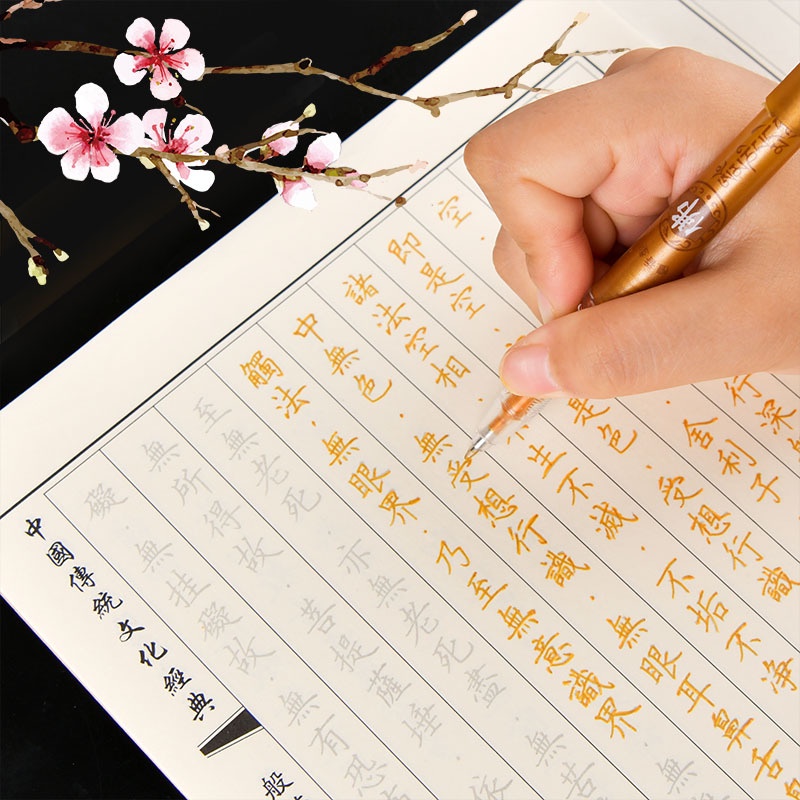 行深
空 舍利子
即是空 是色 受想行識
諸法空相 生不滅 不垢不淨
中無色 無受想行識 無眼耳鼻舌
觸法 無眼界 乃至無意識界 無
至無老死 亦無老死盡 無苦
無所得故 菩提薩埵 依
礙 無挂礙故 無有恐
中國傳統文化經典
般
佛